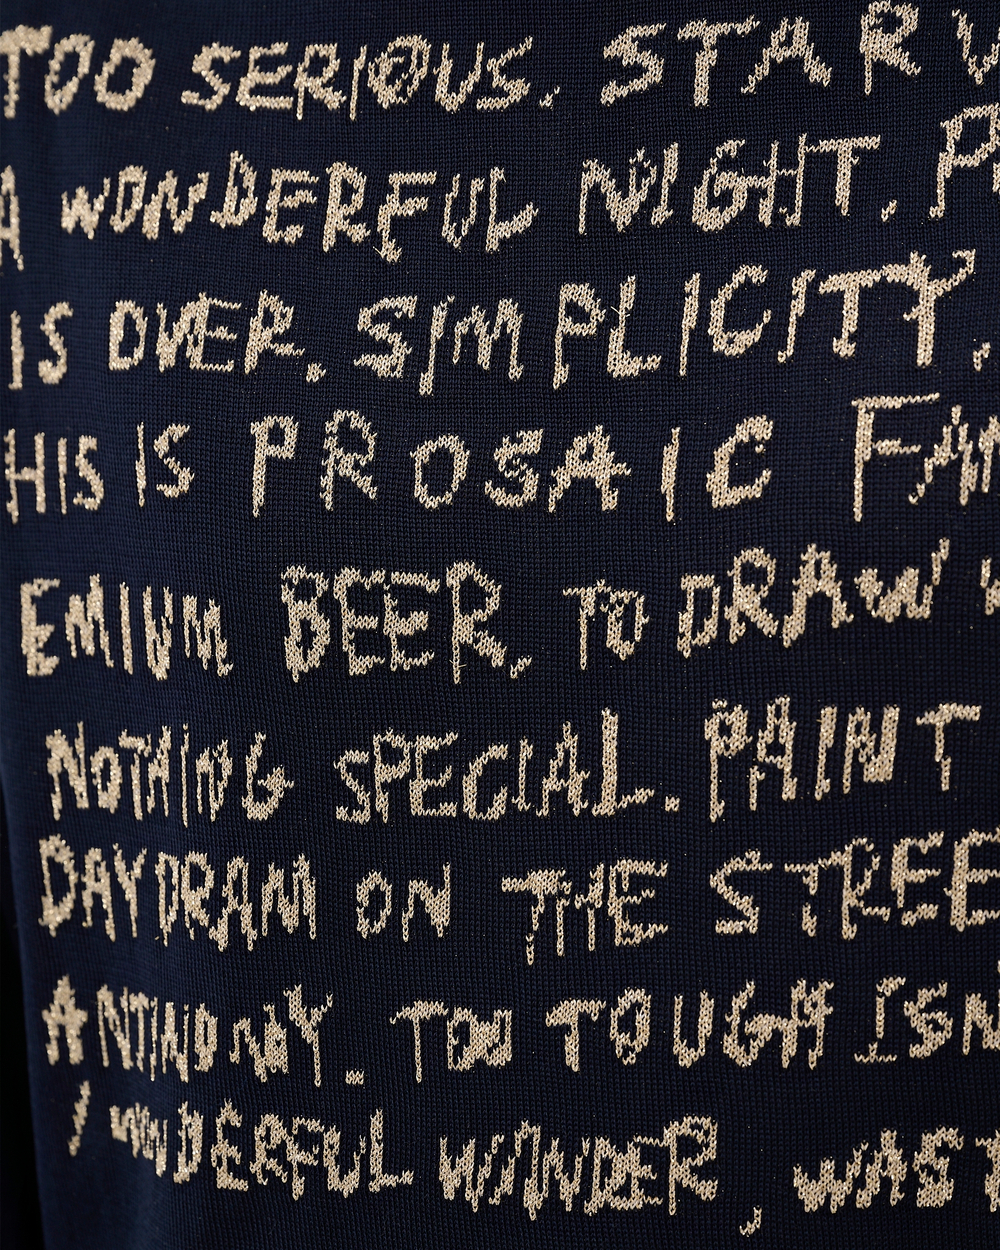 TOO SERIOUS. STARV
A WONDERFUL NIGHT. P
IS OVER. SIMPLICITY.
HIS IS PROSAIC FAM
EMIUM BEER. TO DRAW
NOTHING SPECIAL. PAINT
DAYDRAM ON THE STREE
ANTINOMY. TOO TOUGH ISN
WONDERFUL WONDER, WAS